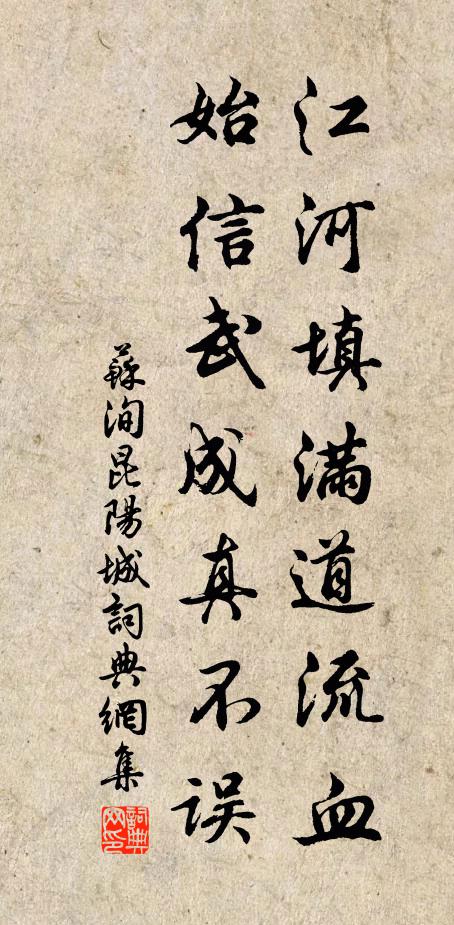 江河填满道流血
始信武成真不误
蘇洵昆陽城詞典網集
詞典網印